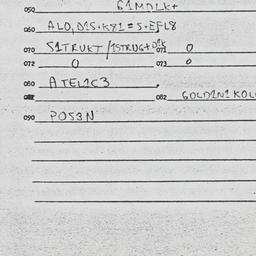 050 G1MDLK+
060 ALO,D1S+K81=S+EFL8
070 S1TRUKT/1STRUG+D1K 071 0
072 0 073 0
080 ATEL1C3
082 GOLD1N1KOL
090 POS3N